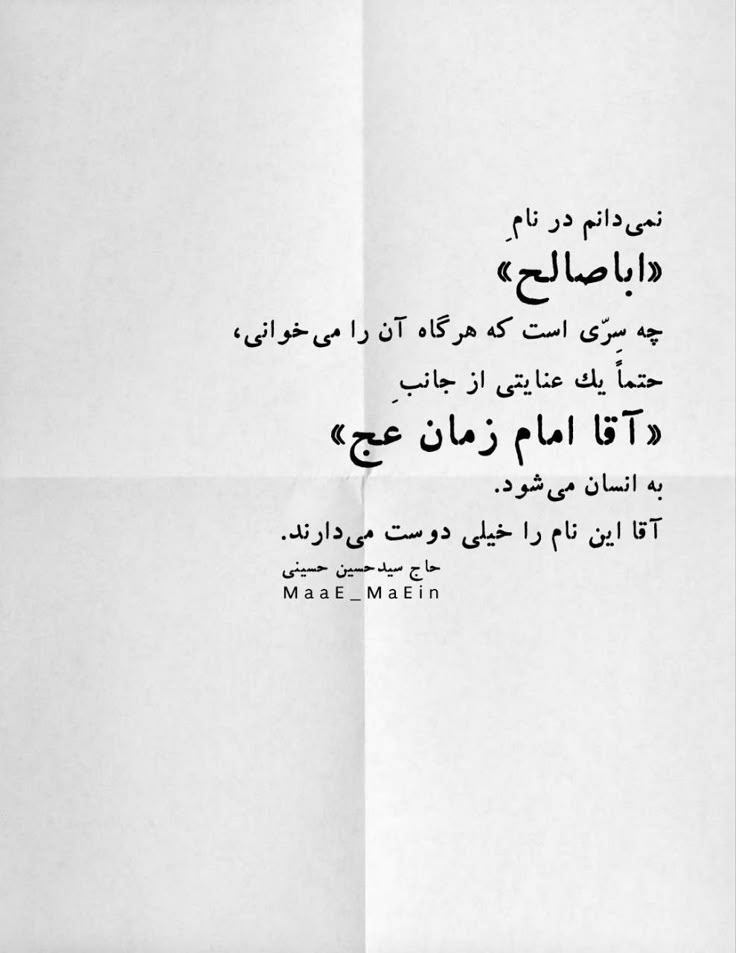 نمی‌دانم در نامِ
«اباصالح»
چه سِرّی است که هرگاه آن را می‌خوانی،
حتماً یك عنایتی از جانبِ
«آقا امام زمان عج»
به انسان می‌شود.
آقا این نام را خیلی دوست می‌دارند.
حاج سیدحسین حسینی
MaaE_MaEin